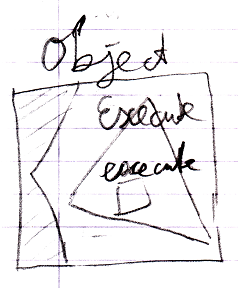 Object
Execute
execute